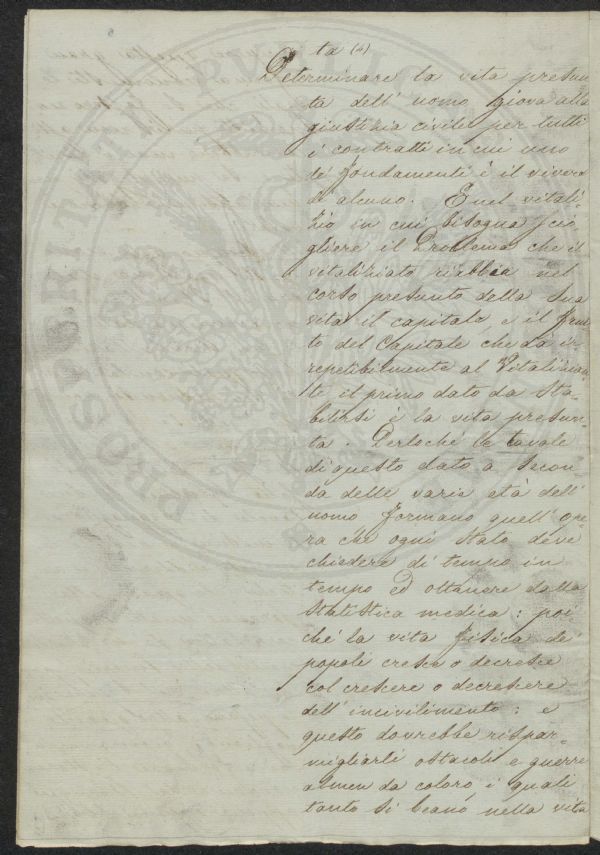 ta (4)
Determinare la vita presun
ta dell' uomo giova alla
giustizia civile per tutti
i contratti in cui uno
de' fondamenti è il vivere
di alcuno. E nel vitali-
zio in cui bisogna scio
gliere il Problema che il
vitaliziato riabbia nel
corso presunto della sua
vita il capitale, e il frut
to del Capitale che dà ir-
repetibilmente al Vitalizian
te il primo dato da sta-
bilirsi è la vita presun-
ta. Perloché le tavole
di questo dato a secon
da delle varie età dell'
uomo formano quell' ope
ra che ogni stato deve
chiedere di tempo in
tempo ed ottenere dalla
statistica medica: poi
ché la vita fisica de'
popoli cresce o decresce
col crescere o decrescere
dell' incivilimento: e
questo dovrebbe rispar-
migliarli ostacoli e guerre
almen da coloro i quali
tanto si beano nella vita
PROSPERITATI PVBLIC